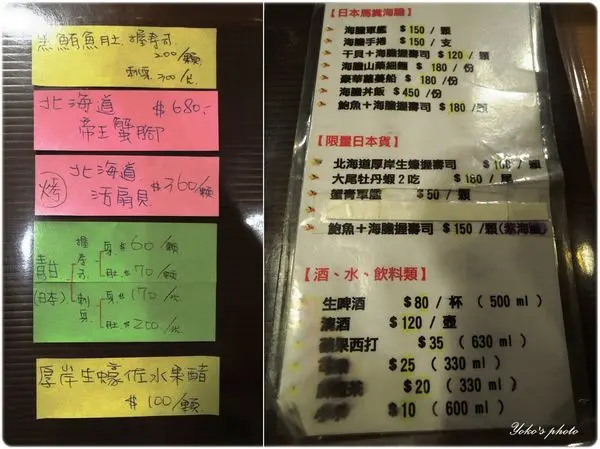 黑鮪魚肚 握壽司
200/顆
刺身 300/片
北海道 $680.-
帝王蟹腳
烤 北海道 $360/顆
活扇貝
青甘 握壽司 身 $60/顆
肚 $70/顆
(日本) 刺身 身 $170/片
肚 $200/片
厚岸生蠔佐水果醋
$100/顆
【日本馬糞海膽】
海膽軍艦 $150 / 顆
海膽手捲 $150 / 支
干貝+海膽握壽司 $120 / 顆
海膽山藥細麵 $180 /份
豪華蘆薈船 $180 /份
海膽丼飯 $450 /份
鮑魚+海膽握壽司 $180 /顆
【限量日本貨】
北海道厚岸生蠔握壽司 / 顆
大尾牡丹蝦2吃 $180 / 尾
蟹膏軍艦 $50 / 顆
鮑魚+海膽握壽司 $150 /顆(紫海膽)
【酒、水、飲料類】
生啤酒 $80 / 杯 ( 500 ml )
清酒 $120 / 壺
蘋果西打 $35 ( 630 ml )
$25 ( 330 ml )
茶 $20 ( 330 ml )
$10 ( 600 ml )
Yoko's photo